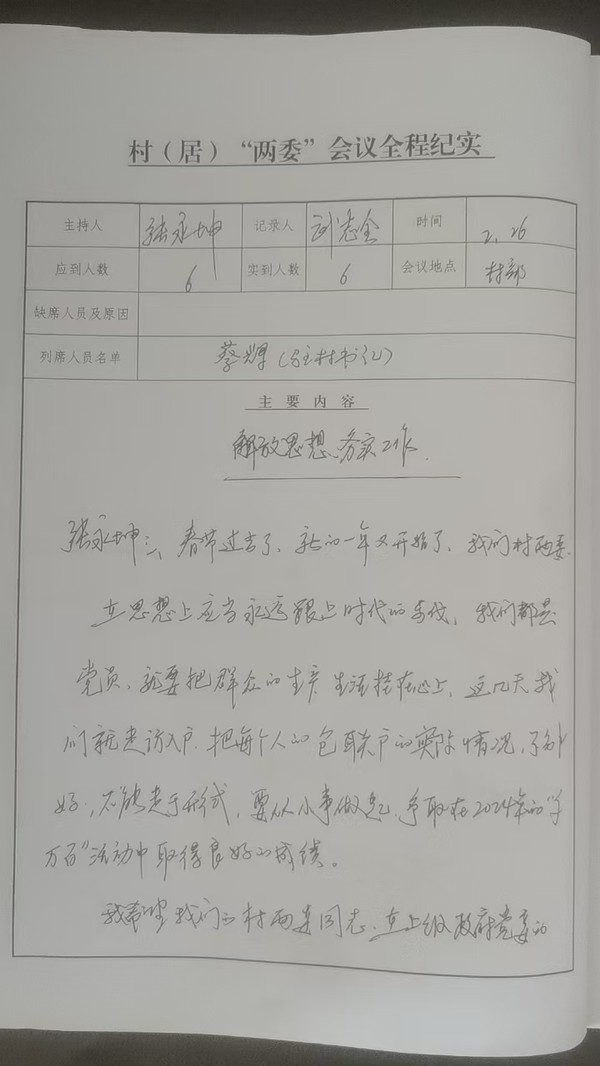 村（居）“两委”会议全程纪实
主持人 张永坤 记录人 刘志全 时间 2.26
应到人数 6 实到人数 6 会议地点 村部
缺席人员及原因
列席人员名单 蔡辉（驻村书记）
主要内容
解放思想、务实工作.
张永坤：、春节过去了，新的一年又开始了，我们村两委
在思想上应当永远跟上时代的步伐，我们都是
党员，就要把群众的生产生活挂在心上，这几天我
们就走访入户，把每个人的包联户的实际情况，了解
好，不能走于形式，要从小事做起，争取在2024年的“千
万百”活动中取得良好的成绩。
我希望我们的村两委同志，在上级政府党委的